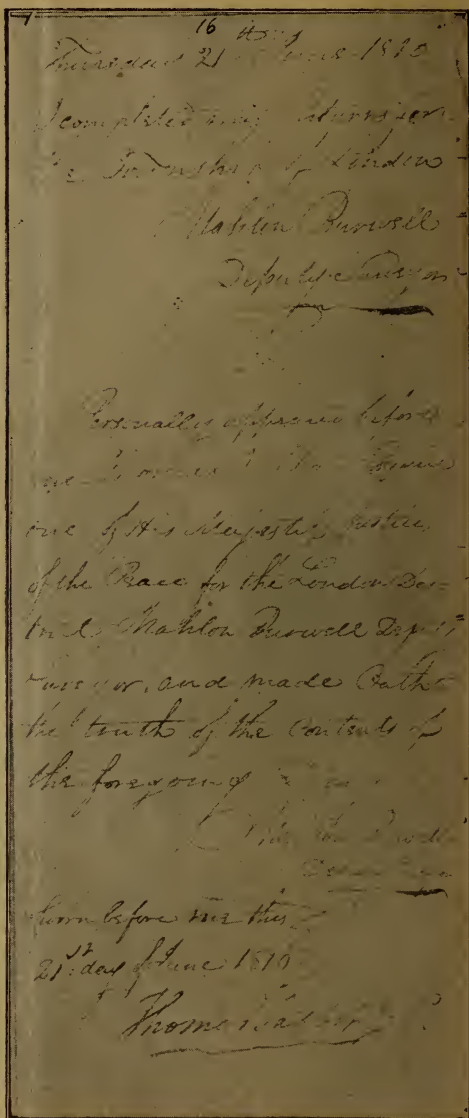 16
Thursday 21 June 1810
I completed my
the Township of London
Mahlon Burwell
Deputy Surveyor
Personally appeared before
me
one of His Majesties Justices
of the Peace for the London Dis=
trict Mahlon Burwell Deputy
Surveyor, and made Oath
the truth of the Contents of
the foregoing
Mahlon Burwell
Sworn before me this
21st day of June 1810
Thomas Talbot